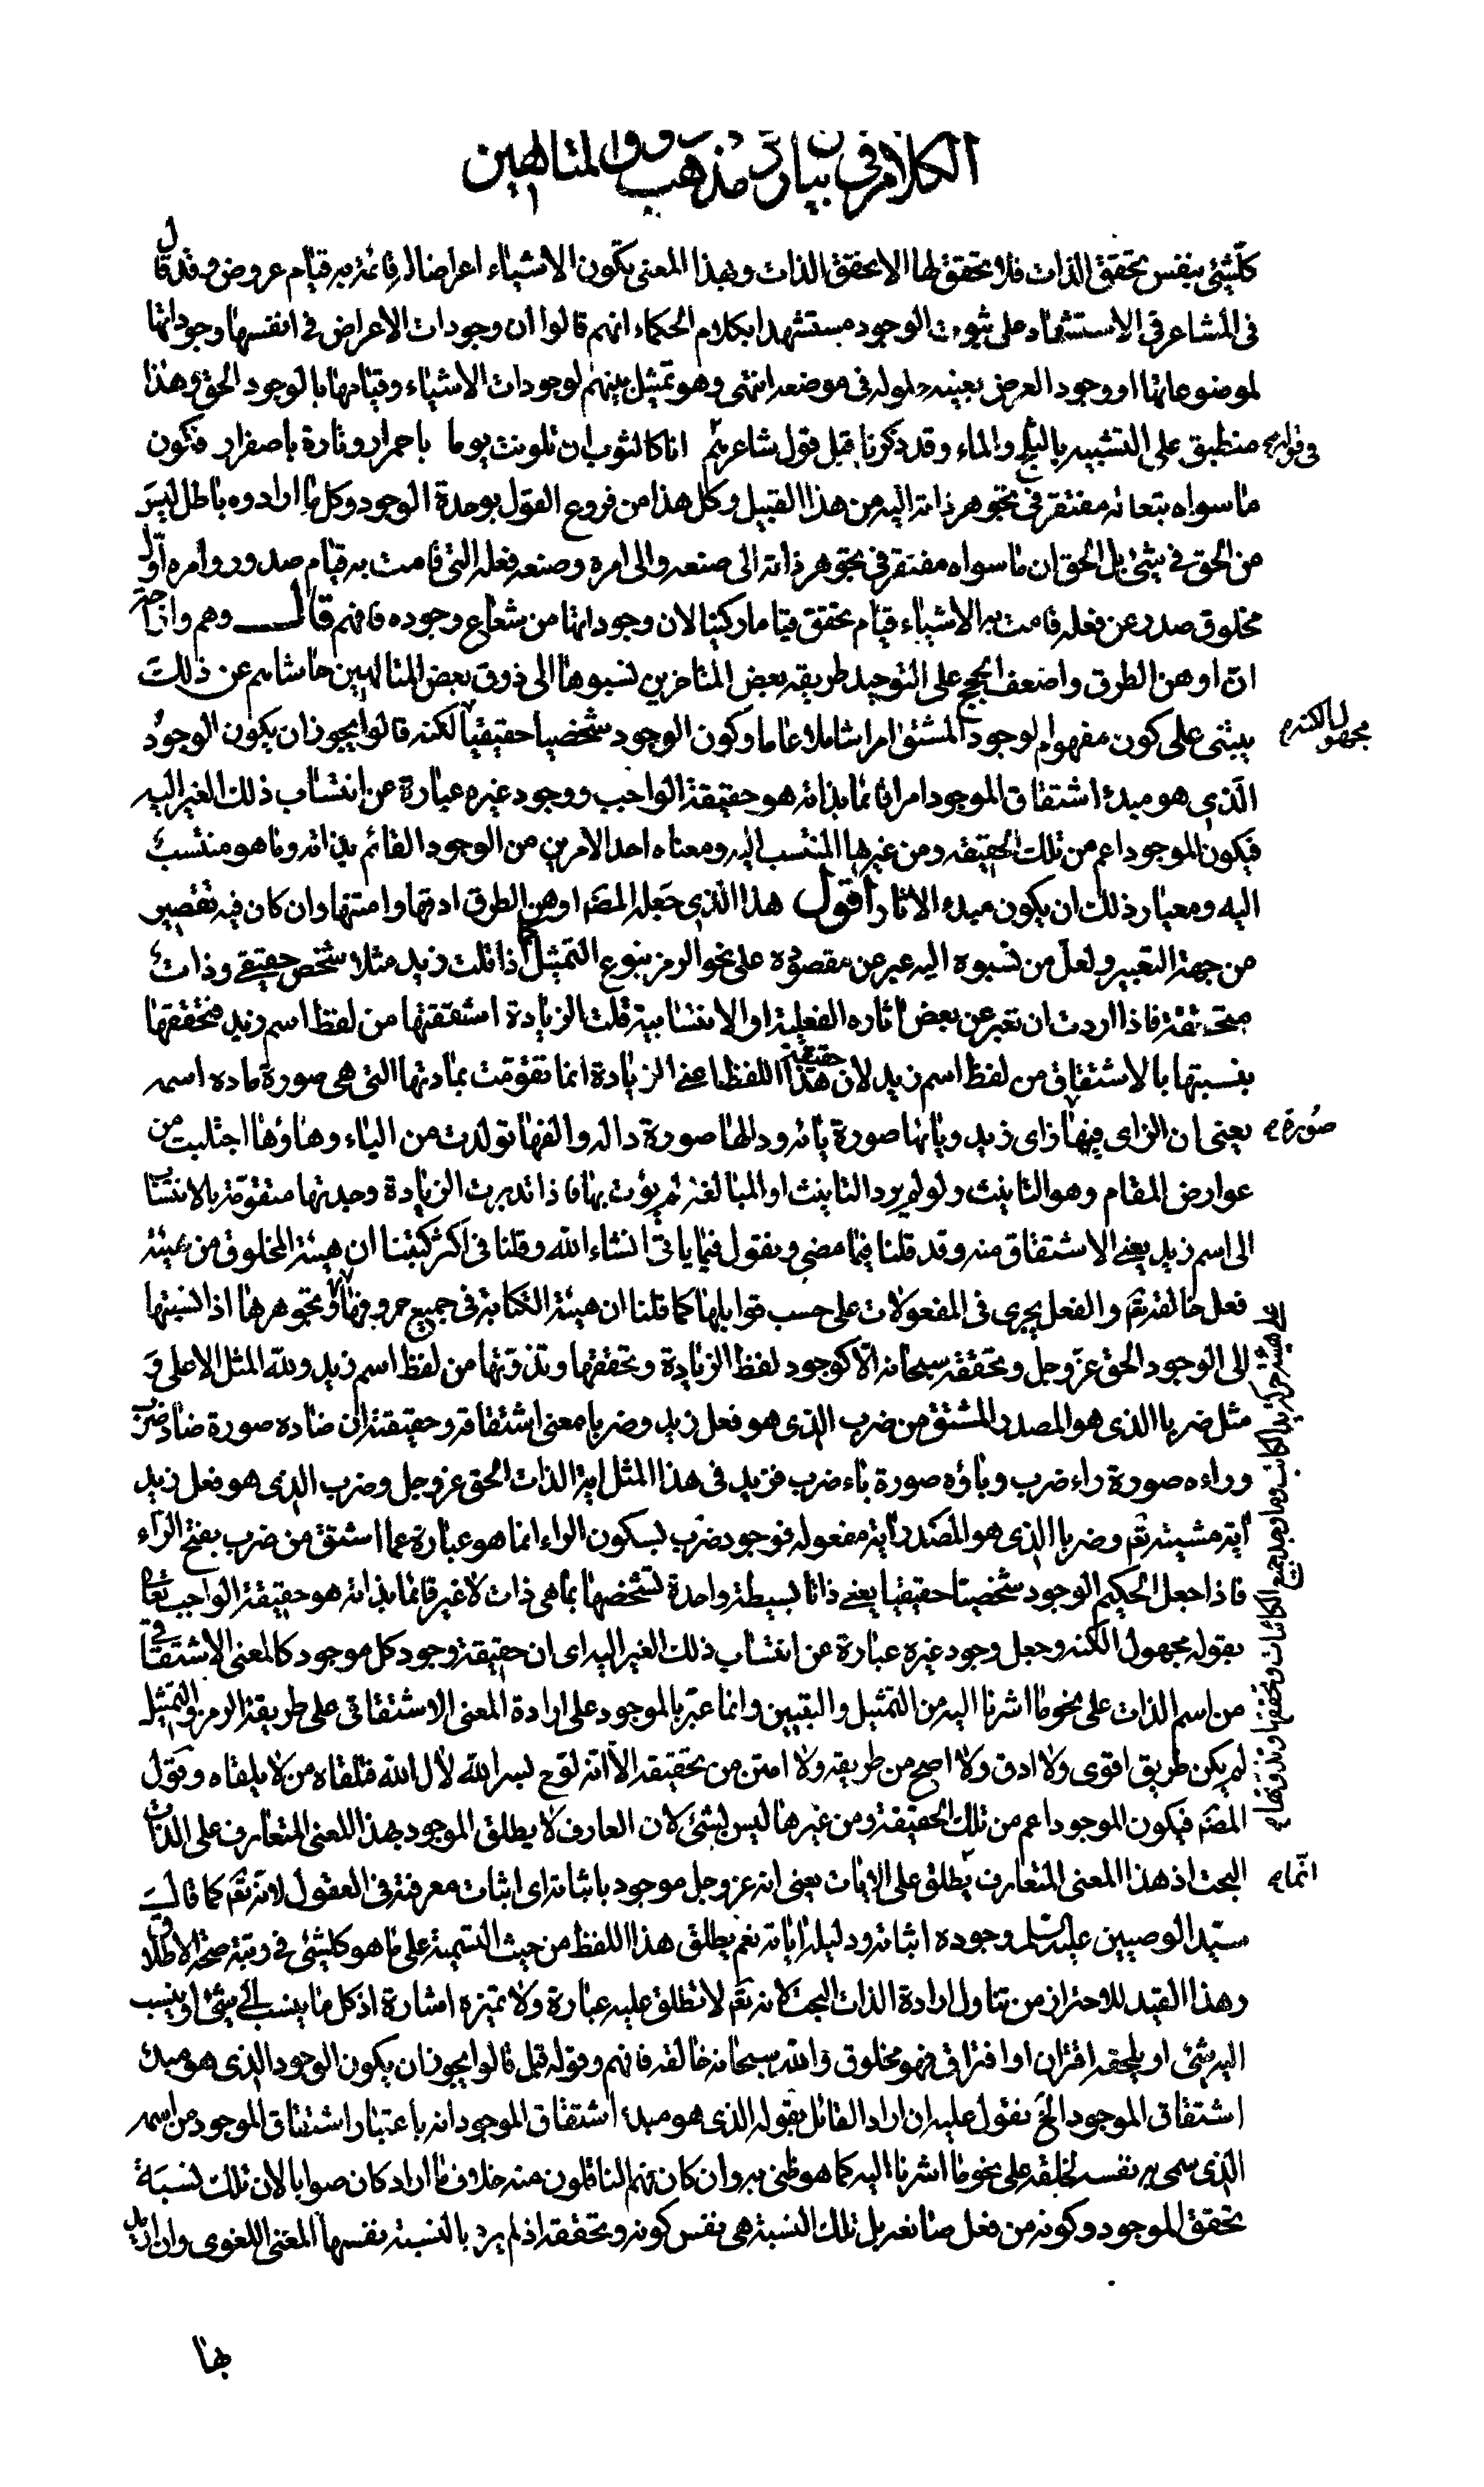 الكلام في بيان ذوق مذهب المتالهين
كلشئ بنفس تحقق الذات فلا تحقق لها الا بتحقق الذات وبهذا المعنى يكون الاشياء اعراضا له قائمة به قيام عروض وقد قال
في المشاعر في الاستشهاد على ثبوت الوجود مستشهدا بكلام الحكماء انهم قالوا ان وجودات الاعراض في انفسها وجوداتها
لموضوعاتها او وجود العرض بعينه حلوله في موضعه انتهى وهو تمثيل بينهم لوجودات الاشياء وقيامها بالوجود الحق وهذا
منطبق على التشبيه بالثلج والماء وقد ذكرنا قبل قول شاعرهم انا كالثوب ان تلونت يوما باحمرار وتارة باصفرار فتكون
ما سواه بتعانه مفتقر في تجوهر ذاته اليه من هذا القبيل وكل هذا من فروع القول بوحدة الوجود وكل ما ارادوه باطل ليس
من الحق في شئ بل الحق ان ما سواه مفتقر في تجوهر ذاته الى صنعه والى امره وصنعه فعله التي قامت به قيام صدور وامره اول
مخلوق صدر عن فعله قامت به الاشياء قيام تحقق قياما ركنيا لان وجوداتها من شعاع وجوده فافهم قال وهم وازاحة
ان اوهن الطرق واضعف الحجج على التوحيد طريقة بعض المتاخرين نسبوها الى ذوق بعض المتالهين حاشاهم عن ذلك
يبتنى على كون مفهوم الوجود المشتق امرا شاملا عاما وكون الوجود شخصيا حقيقيا لكنه قالوا يجوز ان يكون الوجود
مجهول الكنه
الذي هو مبدء اشتقاق الموجود امرا قائما بذاته هو حقيقة الواجب ووجود غيره عبارة عن انتساب ذلك الغير اليه
فيكون الموجود اعم من تلك الحقيقه ومن غيرها المنتسب اليه ومعناه احد الامرين من الوجود القائم بذاته وما هو منتسب
اليه ومعيار ذلك ان يكون مبدء الاثار اقول هذا الذي جعله المصنف اوهن الطرق ادقها وامتنها وان كان فيه تقصير
من جهة التعبير ولعل من نسبوه اليه عبر عن مقصوده على نحو الرمز بنوع التمثيل كما اذا قلت زيد مثلا شخص حقيقي وذات
متحققة فاذا اردت ان تعبر عن بعض اثاره الفعلية او الانتسابية قلت الزيادة اشتققتها من لفظ اسم زيد فتحققها
بنسبتها بالاشتقاق من لفظ اسم زيد لان حقيقة هذا اللفظ اعني الزيادة انما تقومت بمادتها التي هي صورة مادة اسمه
يعني ان الزاي فيها زاي زيد ويائها صورة يائه ودالها صورة داله والفها تولدت من الياء وهاؤها اجتلبت من
صورة
عوارض المقام وهو التانيث ولو لم يرد التانيث او المبالغة لم يؤت بها فاذا تدبرت الزيادة وجدتها متقومة بالانتساب
الى اسم زيد يعني الاشتقاق منه وقد قلنا فيما مضى ونقول فيما ياتي انشاء الله وقلنا في اكثر كتبنا ان هيئة المخلوق من هيئة
فعل خالقه تعم والفعل يجري في المفعولات على حسب قوابلها كما قلنا ان هيئة الكتابة في جميع حروفها وتجوهرها اذا نسبتها
الى الوجود الحق عز وجل وتحققه سبحانه الا كوجود لفظ الزيادة وتحققها وتذوتها من لفظ اسم زيد ولله المثل الاعلى و
مثل ضربا الذي هو المصدر المشتق من ضرب الذي هو فعل زيد وضربا معنى اشتقاقه وحقيقته ان ضاده صورة ضاد ضرب
وراءه صورة راء ضرب وباؤه صورة باء ضرب فزيد في هذا المثل اية الذات الحق عز وجل وضرب الذي هو فعل زيد
اية مشيته تعم وضربا الذي هو المصدر اية مفعوله فوجود ضرب بسكون الراء انما هو عبارة عما اشتق من ضرب بفتح الراء
فاذا جعل الحكيم الوجود شخصيا حقيقيا يعني ذاتا بسيطة واحدة تشخصها بما هي ذات لا غير قائما بذاته هو حقيقة الواجب تعالى
بقوله مجهول الكنه وجعل وجود غيره عبارة عن انتساب ذلك الغير اليه اي ان حقيقة وجود كل موجود كالمعنى الاشتقاقي
من اسم الذات على نحو ما اشرنا اليه من التمثيل والتبيين وانما عبر بالموجود على ارادة المعنى الاشتقاقي على طريقة الرمز والتمثيل
لم يكن طريق اقوى ولا ادق ولا اصح من طريقه ولا امتن من تحقيقه الا انه لوح لسر الله لال الله فتلقاه من لا يلقاه وقول
المصنف فيكون الموجود اعم من تلك الحقيقة ومن غيرها ليس بشئ لان العارف لا يطلق الموجود بهذا المعنى المتعارف على الذات
البحت اذ هذا المعنى المتعارف يطلق على الايات يعني انه عز وجل موجود باثباته اي اثبات معرفته في العقول لانه تعم كما قال
انما
سيد الوصيين عليه السلم وجوده اثباته ودليله اياته نعم يطلق هذا اللفظ من حيث التسمية على ما هو كلشئ في رتبة صحة الاطلاق
وهذا القيد للاحتراز من تناول ارادة الذات البحت لانه تعم لا تطلق عليه عبارة ولا تميزه اشارة اذ كل ما ينسب الى شئ او ينسب
اليه شئ او يلحقه اقتران او افتراق فهو مخلوق والله سبحانه خالقه فافهم وقوله قبل قالوا يجوز ان يكون الوجود الذي هو مبدء
اشتقاق الموجود الخ نقول عليه ان اراد القائل بقوله الذي هو مبدء اشتقاق الموجود انه باعتبار اشتقاق الموجود من اسمه
الذي سمى به نفسه لخلقه على نحو ما اشرنا اليه كما هو ظني به وان كان فهم الناقلون منه خلاف ما اراد كان صوابا لان تلك نسبة
تحقق الموجود وكونه من فعل صانعه بل تلك النسبة هي نفس كونه وتحققه اذ لم يرد بالنسبة نفسها المعنى اللغوي وان اريد
بها